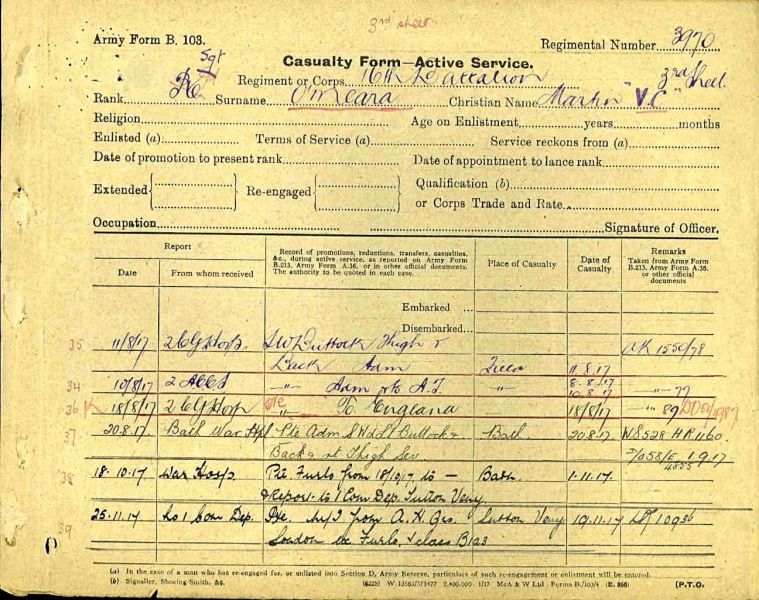 3rd sheet
Army Form B. 103.
Regimental Number 3970
Casualty Form—Active Service.
Sgt
Regiment or Corps 16th Battalion 3rd Sheet
Rank Pte Surname O'Meara Christian Name Martin "V.C."
Religion Age on Enlistment years months
Enlisted (a) Terms of Service (a) Service reckons from (a)
Date of promotion to present rank Date of appointment to lance rank
Extended Re-engaged Qualification (b)
or Corps Trade and Rate
Occupation Signature of Officer.
Report
Date
From whom received
Record of promotions, reductions, transfers, casualties, &c., during active service, as reported on Army Form B.213, Army Form A.36, or in other official documents. The authority to be quoted in each case.
Place of Casualty
Date of Casualty
Remarks
Taken from Army Form B.213, Army Form A.36, or other official documents
Embarked ...
Disembarked ...
35 11/8/17 2 CG Hosp. S.W. Buttock Thigh &
Back Adm 11.8.17
34 10/8/17 " Adm " 8.8.17 " 77
10.8.17
36 18/8/17 2 CG Hosp Pte " To England 18/8/17 " 89
37 20.8.17 Bath War Hpl Pte Adm S.W. Buttock & Bath 20.8.17 WS528 HR1160
Back & rt Thigh Sev
4855 1917
38 18.10.17 War Hosp. Pte. Furlo from 18/10/17 to — Bath. 1.11.17.
& Report to 1 Com Dep. Sutton Veny
39 25.11.17 No 1 Com Dep. Pte. from A.H.Qrs. Sutton Veny 19.11.17
London ex Furlo, & class B1a3
(a) In the case of a man who has re-engaged for, or enlisted into Section D, Army Reserve, particulars of such re-engagement or enlistment will be entered.
(b) Signaller, Shoeing Smith, &c. 2,400,000 1/17 McA & W Ltd Forms B./103/4 (E. 866) [P.T.O.